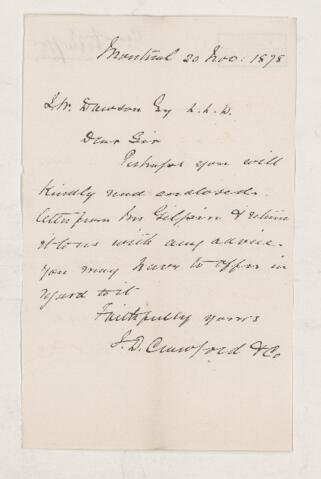 Montreal 20 Nov: 1878
J.W. Dawson Esq L.L.D.
Dear Sir
Perhaps you will
kindly read enclosed
letter from Mr Gilpin & return
it to us with any advice
you may have to offer in
regard to it
Faithfully yours
J.D. Crawford & Co